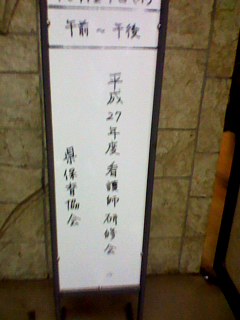 午前 ~ 午後
平成27年度 看護師研修会
県保育協会